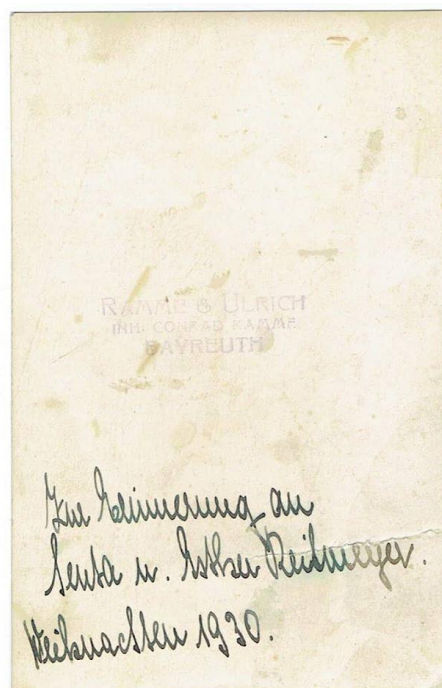 RAMME & ULRICH
INH. CONRAD RAMME
BAYREUTH
Zur Erinnerung an
Senta u. Esther Reitmeyer.
Weihnachten 1930.